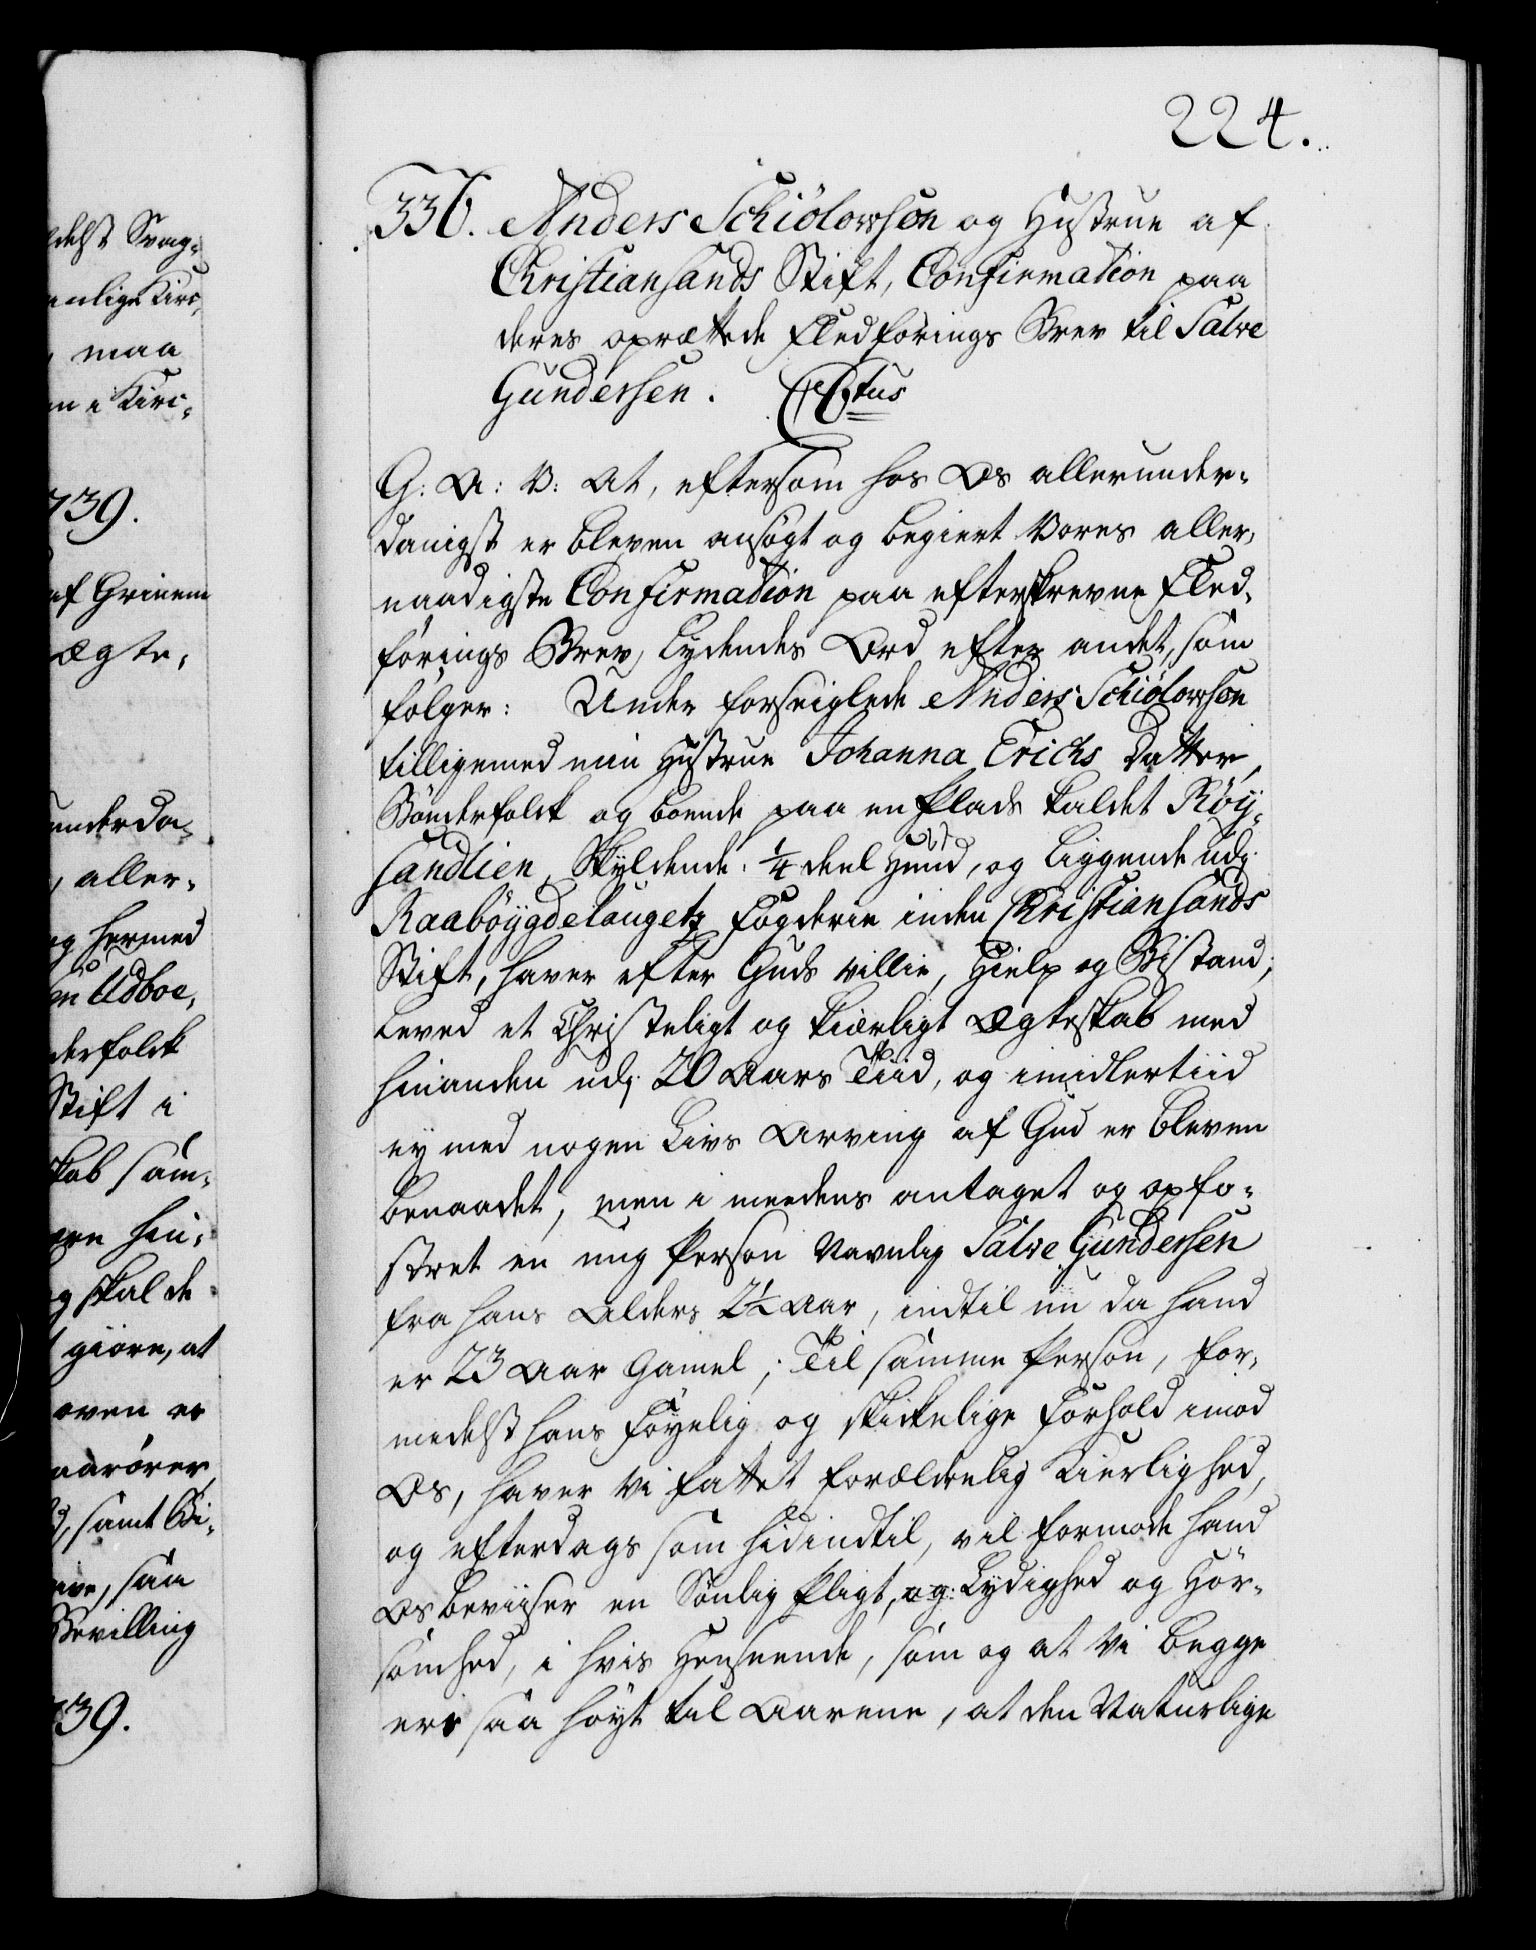 224.
336. Anders Schiölowsøn og Hustrue af
Christiansands Stift, Confirmation paa
deres oprættede Fledførings Brev til Salve
Gundersen. CCtus
G: A: V: At, eftersom hos Os allerunder-
danigst er bleven ansøgt og begiert Vores aller-
naadigste Confirmation paa efterskrevne Fled-
førings Brev, Lydendes Ord efter andet, som
følger: Under forseiglede Anders Schiölowsøn
tilligemed min Hustrue Johanna Erichs Datter,
Bønderfolck og boende paa en Plads kaldet Röy-
sandlien, Skyldende ¼ deel Hud, og Liggende udj
Raabøygdelaugetz Fogderie inden Christiansands
Stift, haver efter Guds villie, Hielp og Bistand,
Leved et Christeligt og kiærligt Ægteskab med
hinanden udj 20 Aars Tiid, og imidlertiid
ey med nogen Livs Arving af Gud er bleven
benaadet, men i meedens antaget og opfo-
stret en ung Person Navnlig Salve Gundersen
fra hans Alders 2½ Aar, indtil nu da hand
er 23 Aar Gamel; Til samme Person, for-
medelst hans Føyelig og skickelige Forhold imod
Os, haver Vi fattet forældrelig Kierlighed,
og efterdags som hidindtil, vel formode hand
Os beviiser en Sønlig Pligt, og Lydighed og Hør-
somhed, i hvis Henseende, som og at Vi begge
ere saa høyt til Aarene, at den Naturlige
delst Svag-
maa
739.
af Grinem
ægte-
underda-
aller-
og hermed
Udboe,
derfolck
Stift i
skab sam-
hin-
og skal de
giøre, at
oven er
, samt Bi-
, saa
Bevilling
39.